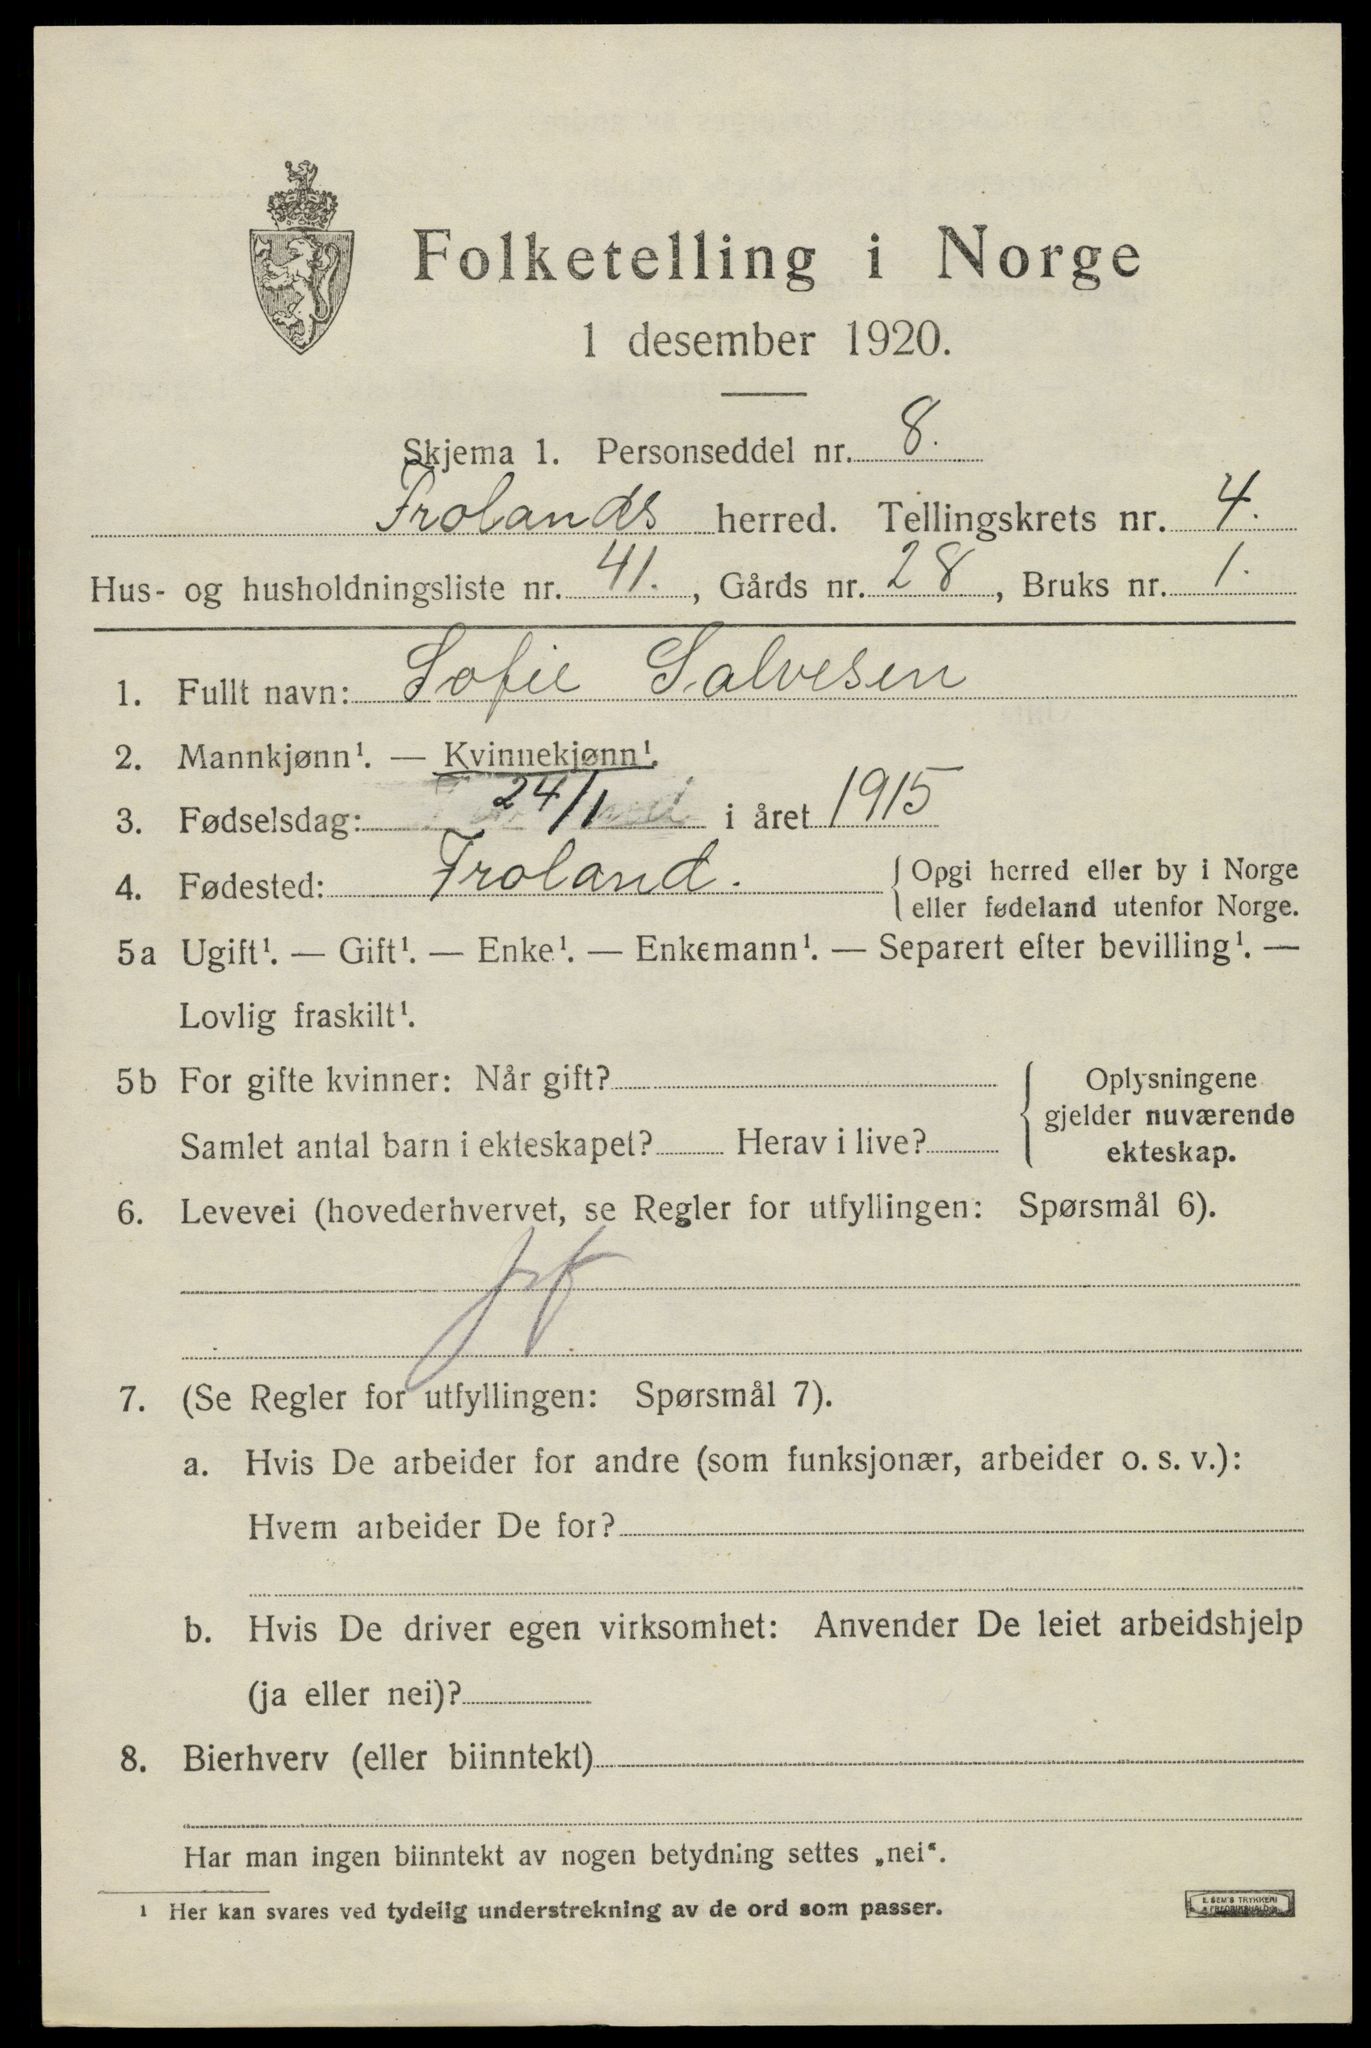 Folketelling i Norge
1 desember 1920.
Skjema 1. Personseddel nr. 8.
Frolands herred. Tellingskrets nr. 4.
Hus- og husholdningsliste nr. 41., Gårds nr. 28, Bruks nr. 1.
1. Fullt navn: Sofie Salvesen
2. Mannkjønn¹. — Kvinnekjønn¹.
3. Fødselsdag: 24/1 i året 1915
4. Fødested: Froland. { Opgi herred eller by i Norge
eller fødeland utenfor Norge.
5a Ugift¹. — Gift¹. — Enke¹. — Enkemann¹. — Separert efter bevilling¹. —
Lovlig fraskilt¹.
5b For gifte kvinner: Når gift? { Oplysningene
gjelder nuværende
Samlet antal barn i ekteskapet? Herav i live? ekteskap.
6. Levevei (hovederhvervet, se Regler for utfyllingen: Spørsmål 6).
7. (Se Regler for utfyllingen: Spørsmål 7).
a. Hvis De arbeider for andre (som funksjonær, arbeider o. s. v.):
Hvem arbeider De for?
b. Hvis De driver egen virksomhet: Anvender De leiet arbeidshjelp
(ja eller nei)?
8. Bierhverv (eller biinntekt)
Har man ingen biinntekt av nogen betydning settes „nei“.
¹ Her kan svares ved tydelig understrekning av de ord som passer.
E. SEM'S TRYKKERI
FREDRIKSHALD